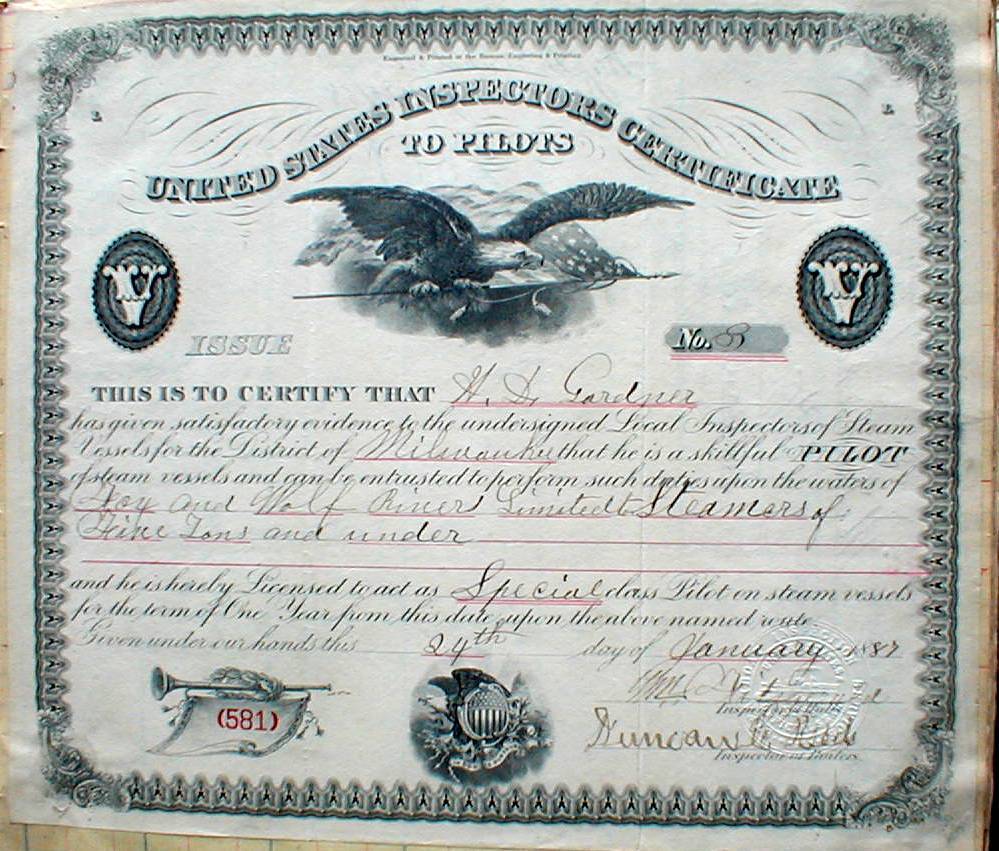 Engraved & Printed at the Bureau, Engraving & Printing
UNITED STATES INSPECTORS CERTIFICATE
TO PILOTS
XV XV
ISSUE
No. 8
THIS IS TO CERTIFY THAT H. D. Gardner
has given satisfactory evidence to the undersigned Local Inspectors of Steam
Vessels for the District of Milwaukee that he is a skillful PILOT
of steam vessels and can be entrusted to perform such duties upon the waters of
Fox and Wolf Rivers Limited to Steamers of
Five Tons and under
and he is hereby Licensed to act as Special class Pilot on steam vessels
for the term of One Year from this date upon the above named route
Given under our hands this 24th day of January 1887
Wm
Inspector of Hulls
(581)
Duncan
Inspector of Boilers